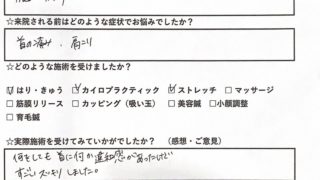 ☆来院される前はどのような症状でお悩みでしたか？
首の痛み . 肩こり
☆どのような施術を受けましたか？
☑はり・きゅう ☑カイロプラクティック ☑ストレッチ □マッサージ
□筋膜リリース □カッピング（吸い玉） □美容鍼 □小顔調整
□育毛鍼
☆実際施術を受けてみていかがでしたか？ （感想・ご意見）
何をしても首に何か違和感があったけど
すごくスッキリしました。